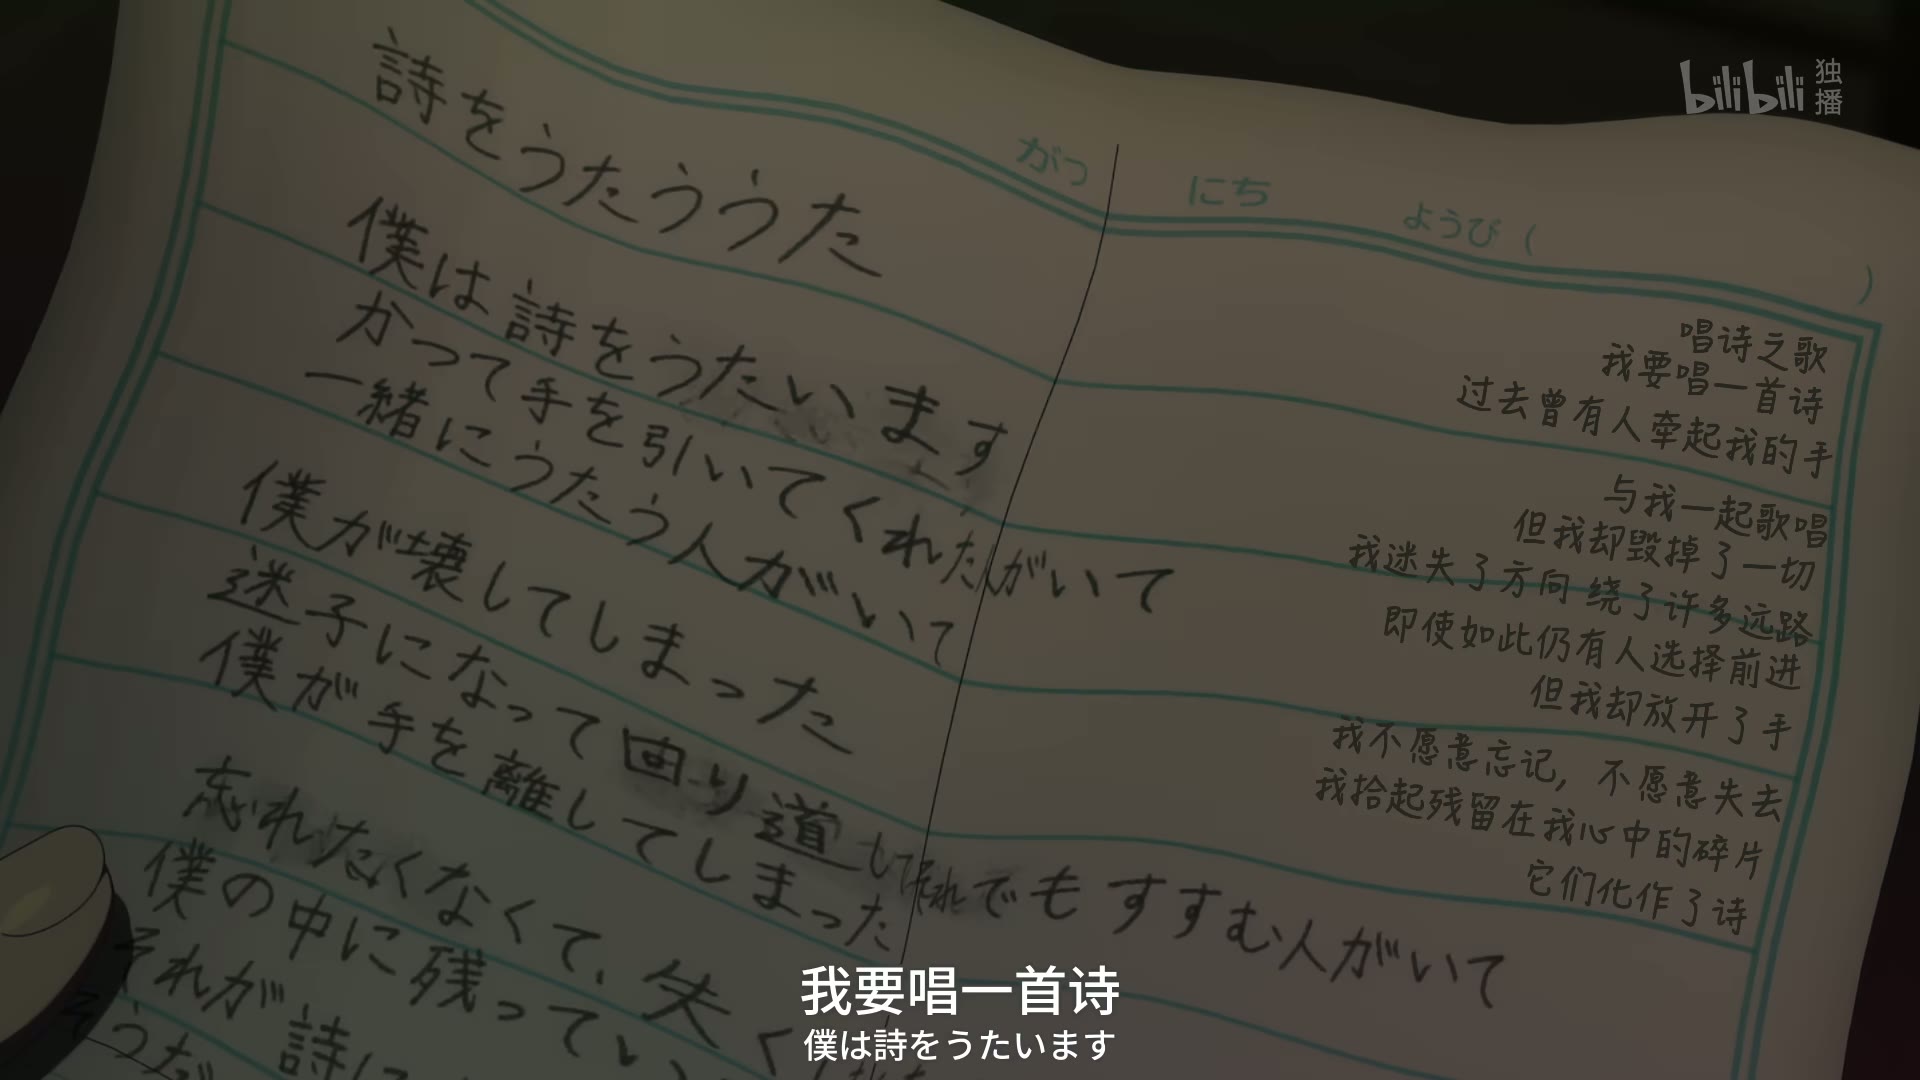 bilibili 独播
がつ にち ようび ( )
詩をうたううた
僕は詩をうたいます
かつて手を引いてくれた人がいて
一緒にうたう人がいて
僕が壊してしまった
迷子になって回り道して それでもすすむ人がいて
僕が手を離してしまった
忘れたくなくて、失く
僕の中に残ってい
それが詩に
そうだ
唱诗之歌
我要唱一首诗
过去曾有人牵起我的手
与我一起歌唱
但我却毁掉了一切
我迷失了方向 绕了许多远路
即使如此仍有人选择前进
但我却放开了手
我不愿意忘记，不愿意失去
我拾起残留在我心中的碎片
它们化作了诗
我要唱一首诗
僕は詩をうたいます